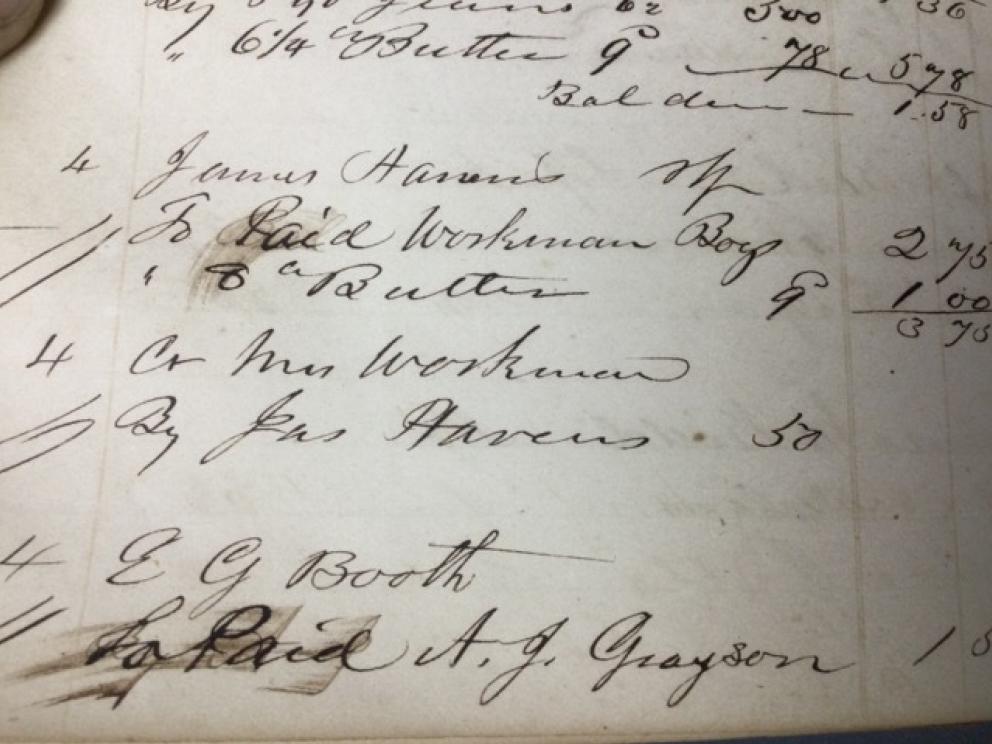 By 500 36
" 6 1/4 " Butter 9 78 578
Bal due 1.58
4 James Havens
To Paid Workman Boy 2 75
" 8 " Butter 9 1 00
3 75
4 Cr Mrs Workman
By Jas Havens 50
4 E G Booth
To Paid A. J. Grayson 1